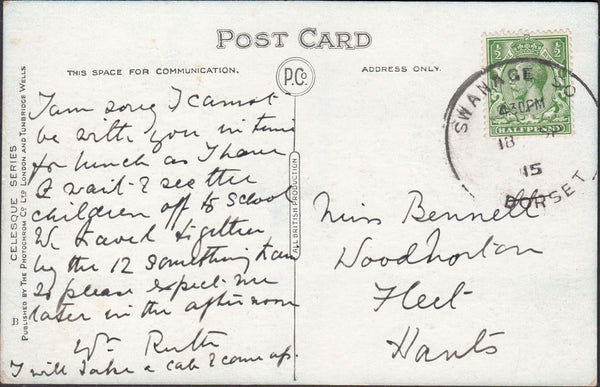 POST CARD
THIS SPACE FOR COMMUNICATION.
P.Co
ADDRESS ONLY.
I am sorry I cannot
be with you in time
for lunch as I have
to wait & see the
children off to school
We travel together
by the 12 something train
so please expect me
later in the afternoon
Ruth
I will take a cab & come up.
Miss Bennett
Woodnorton
Fleet
Hants
SWANAGE S.O
4.30PM
18
15
DORSET
½ ½
HALFPENNY
CELESQUE SERIES
PUBLISHED BY THE PHOTOCHROM CO LTD LONDON AND TUNBRIDGE WELLS
B
ALL BRITISH PRODUCTION